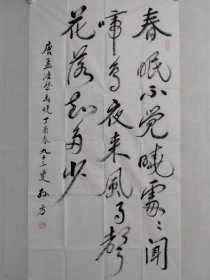 春眠不觉晓处々闻
啼鸟夜来风雨声
花落知多少
唐孟浩然春晓丁酉春九十三叟孙方